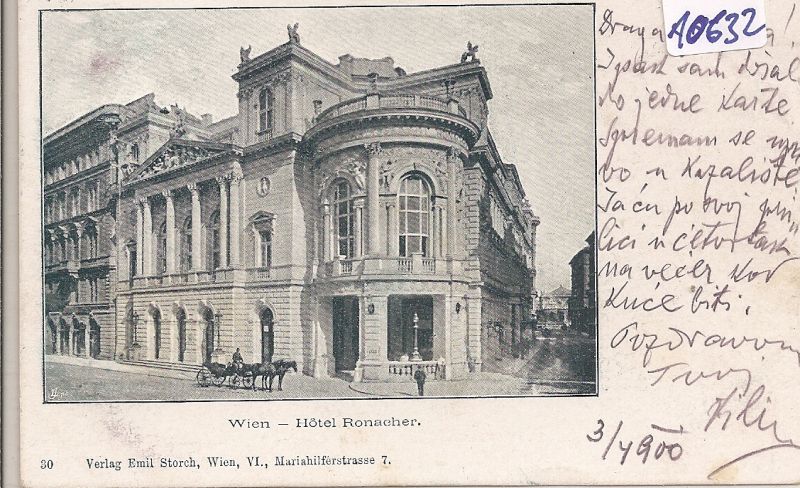 A0632
Draga !
do jedne karte
Spremam se upra
vo u Kazalište
Ja ću po svoj pri
lici u četvrtak
na večer kod
kuće biti.
Pozdravom
Tvoj
3/4 900
Wien – Hôtel Ronacher.
30 Verlag Emil Storch, Wien, VI., Mariahilferstrasse 7.